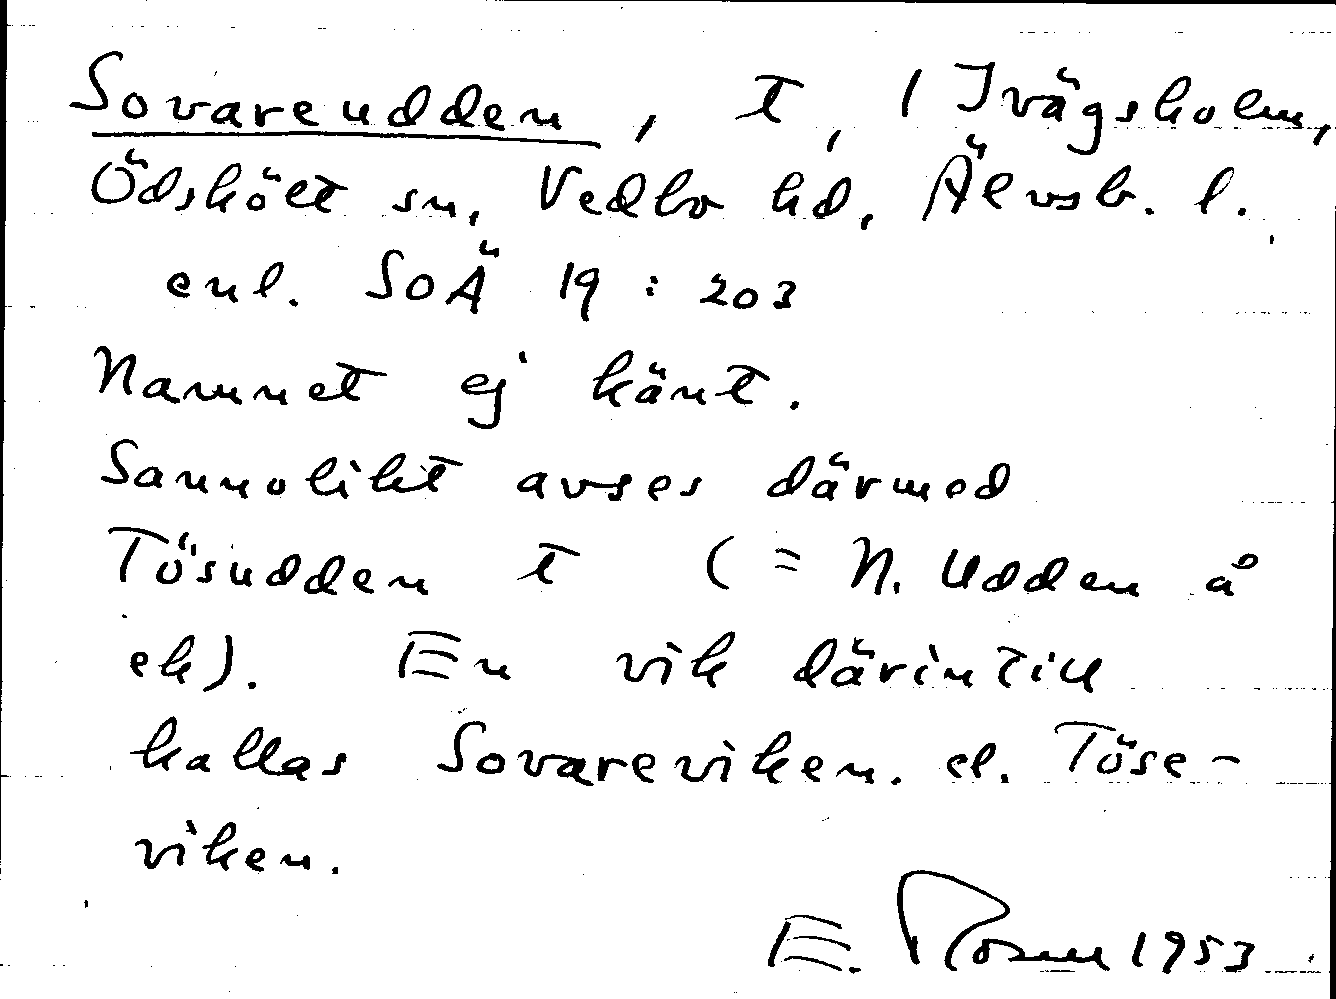 Sovareudden, t, 1 Ivägsholm,
Ödskölt sn, Vedbo hd, Älvsb. l.
enl. SOÄ 19 : 203
Namnet ej känt.
Sannolikt avses därmed
Tösudden t (= N. Udden å
ek). En vik därintill
kallas Sovareviken. el. Töse-
viken.
E. Rosell 1953